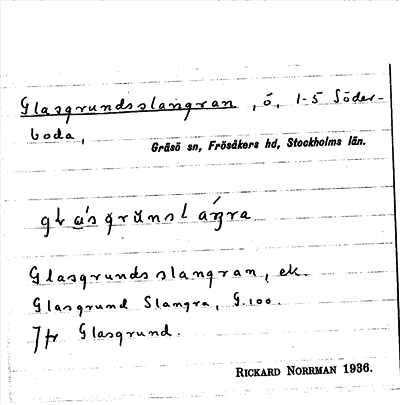 Glasgrundsslangran, ö, 1-5 Söder-
boda,
Gräsö sn, Frösåkers hd, Stockholms län.
Glasgrundsslangran, ek.
Glasgrund Slangra, G.100.
Jfr Glasgrund.
RICKARD NORRMAN 1936.